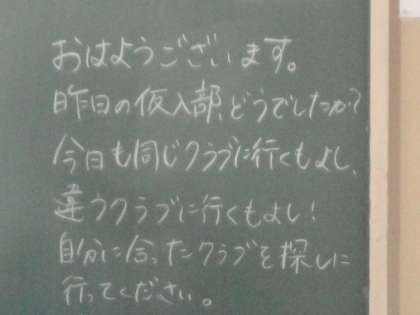 おはようございます。
昨日の仮入部、どうでしたか?
今日も同じクラブに行くもよし、
違うクラブに行くもよし!
自分に合ったクラブを探しに
行ってください。